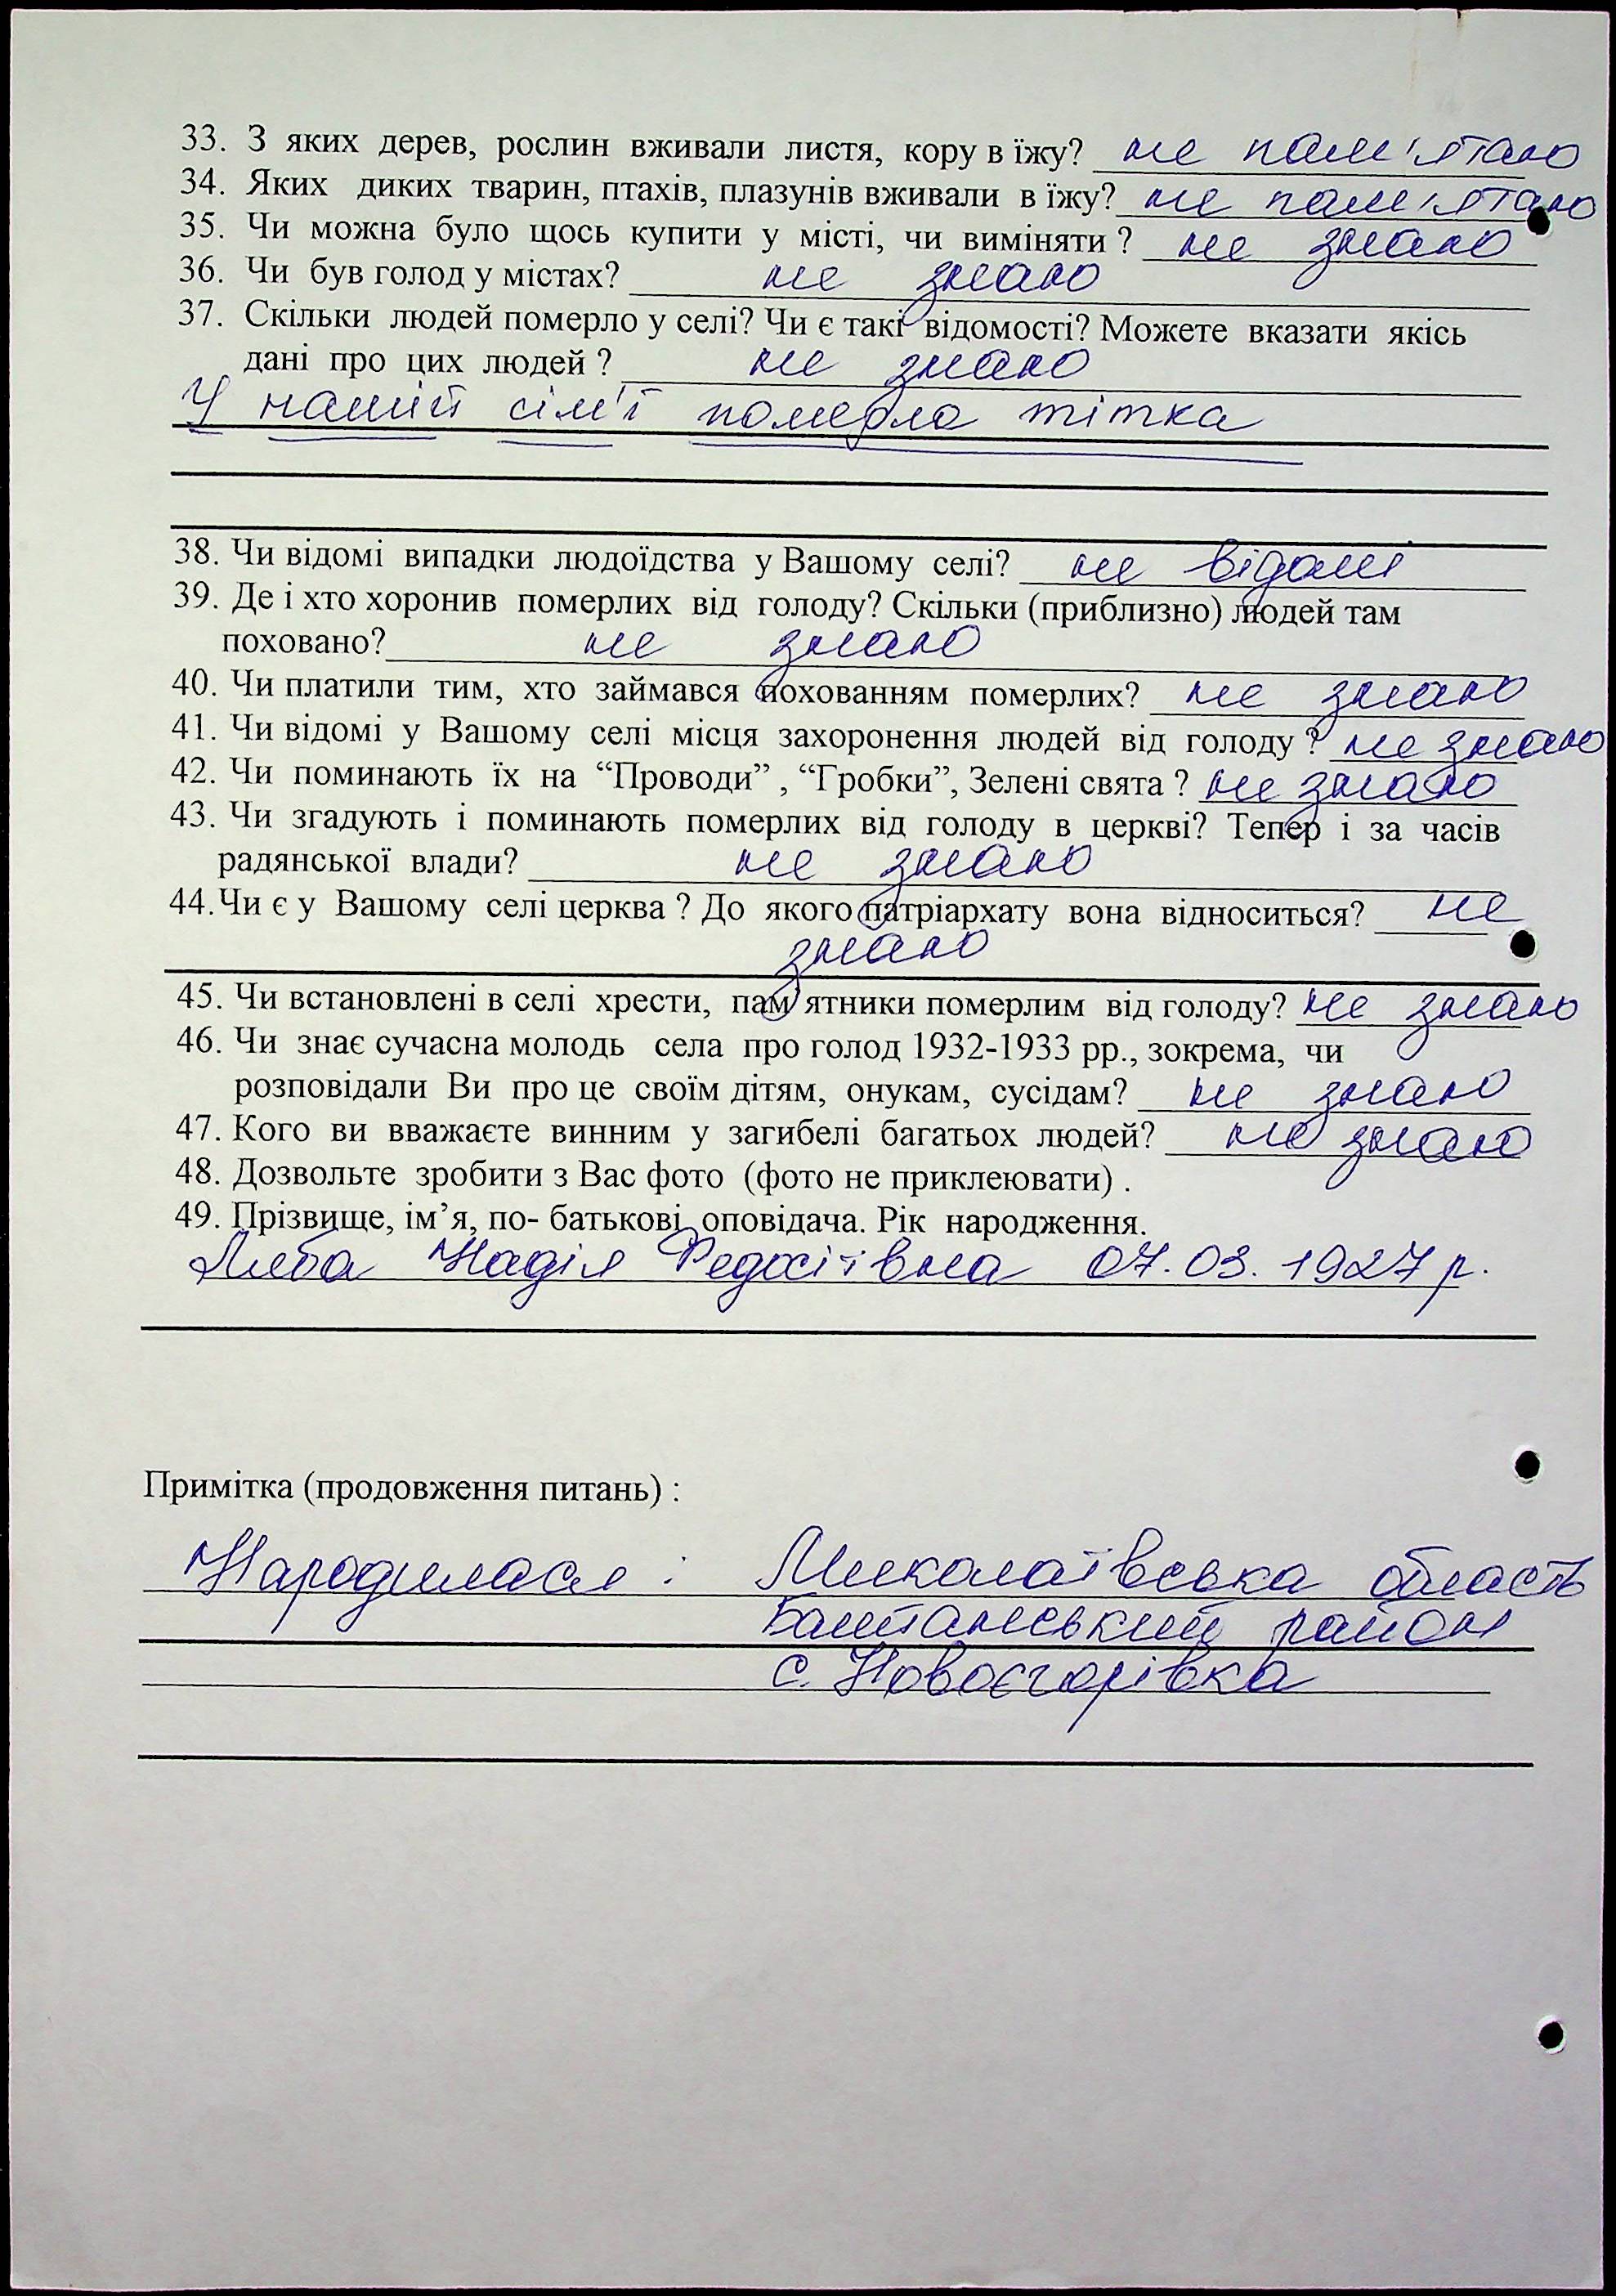 33. З яких дерев, рослин вживали листя, кору в їжу? не пам'ятаю
34. Яких диких тварин, птахів, плазунів вживали в їжу? не пам'ятаю
35. Чи можна було щось купити у місті, чи виміняти ? не знаю
36. Чи був голод у містах? не знаю
37. Скільки людей померло у селі? Чи є такі відомості? Можете вказати якісь
дані про цих людей ? не знаю
У нашій сім'ї померла тітка
38. Чи відомі випадки людоїдства у Вашому селі? не відомі
39. Де і хто хоронив померлих від голоду? Скільки (приблизно) людей там
поховано? не знаю
40. Чи платили тим, хто займався похованням померлих? не знаю
41. Чи відомі у Вашому селі місця захоронення людей від голоду ? не знаю
42. Чи поминають їх на “Проводи” , “Гробки”, Зелені свята ? не знаю
43. Чи згадують і поминають померлих від голоду в церкві? Тепер і за часів
радянської влади? не знаю
44. Чи є у Вашому селі церква ? До якого патріархату вона відноситься? не
знаю
45. Чи встановлені в селі хрести, пам’ятники померлим від голоду? не знаю
46. Чи знає сучасна молодь села про голод 1932-1933 рр., зокрема, чи
розповідали Ви про це своїм дітям, онукам, сусідам? не знаю
47. Кого ви вважаєте винним у загибелі багатьох людей? не знаю
48. Дозвольте зробити з Вас фото (фото не приклеювати) .
49. Прізвище, ім’я, по- батькові оповідача. Рік народження.
Надія Федосіївна 07.03.1927 р.
Примітка (продовження питань) :
Народилася : Миколаївська область
Баштанський район
с. Новоєгорівка